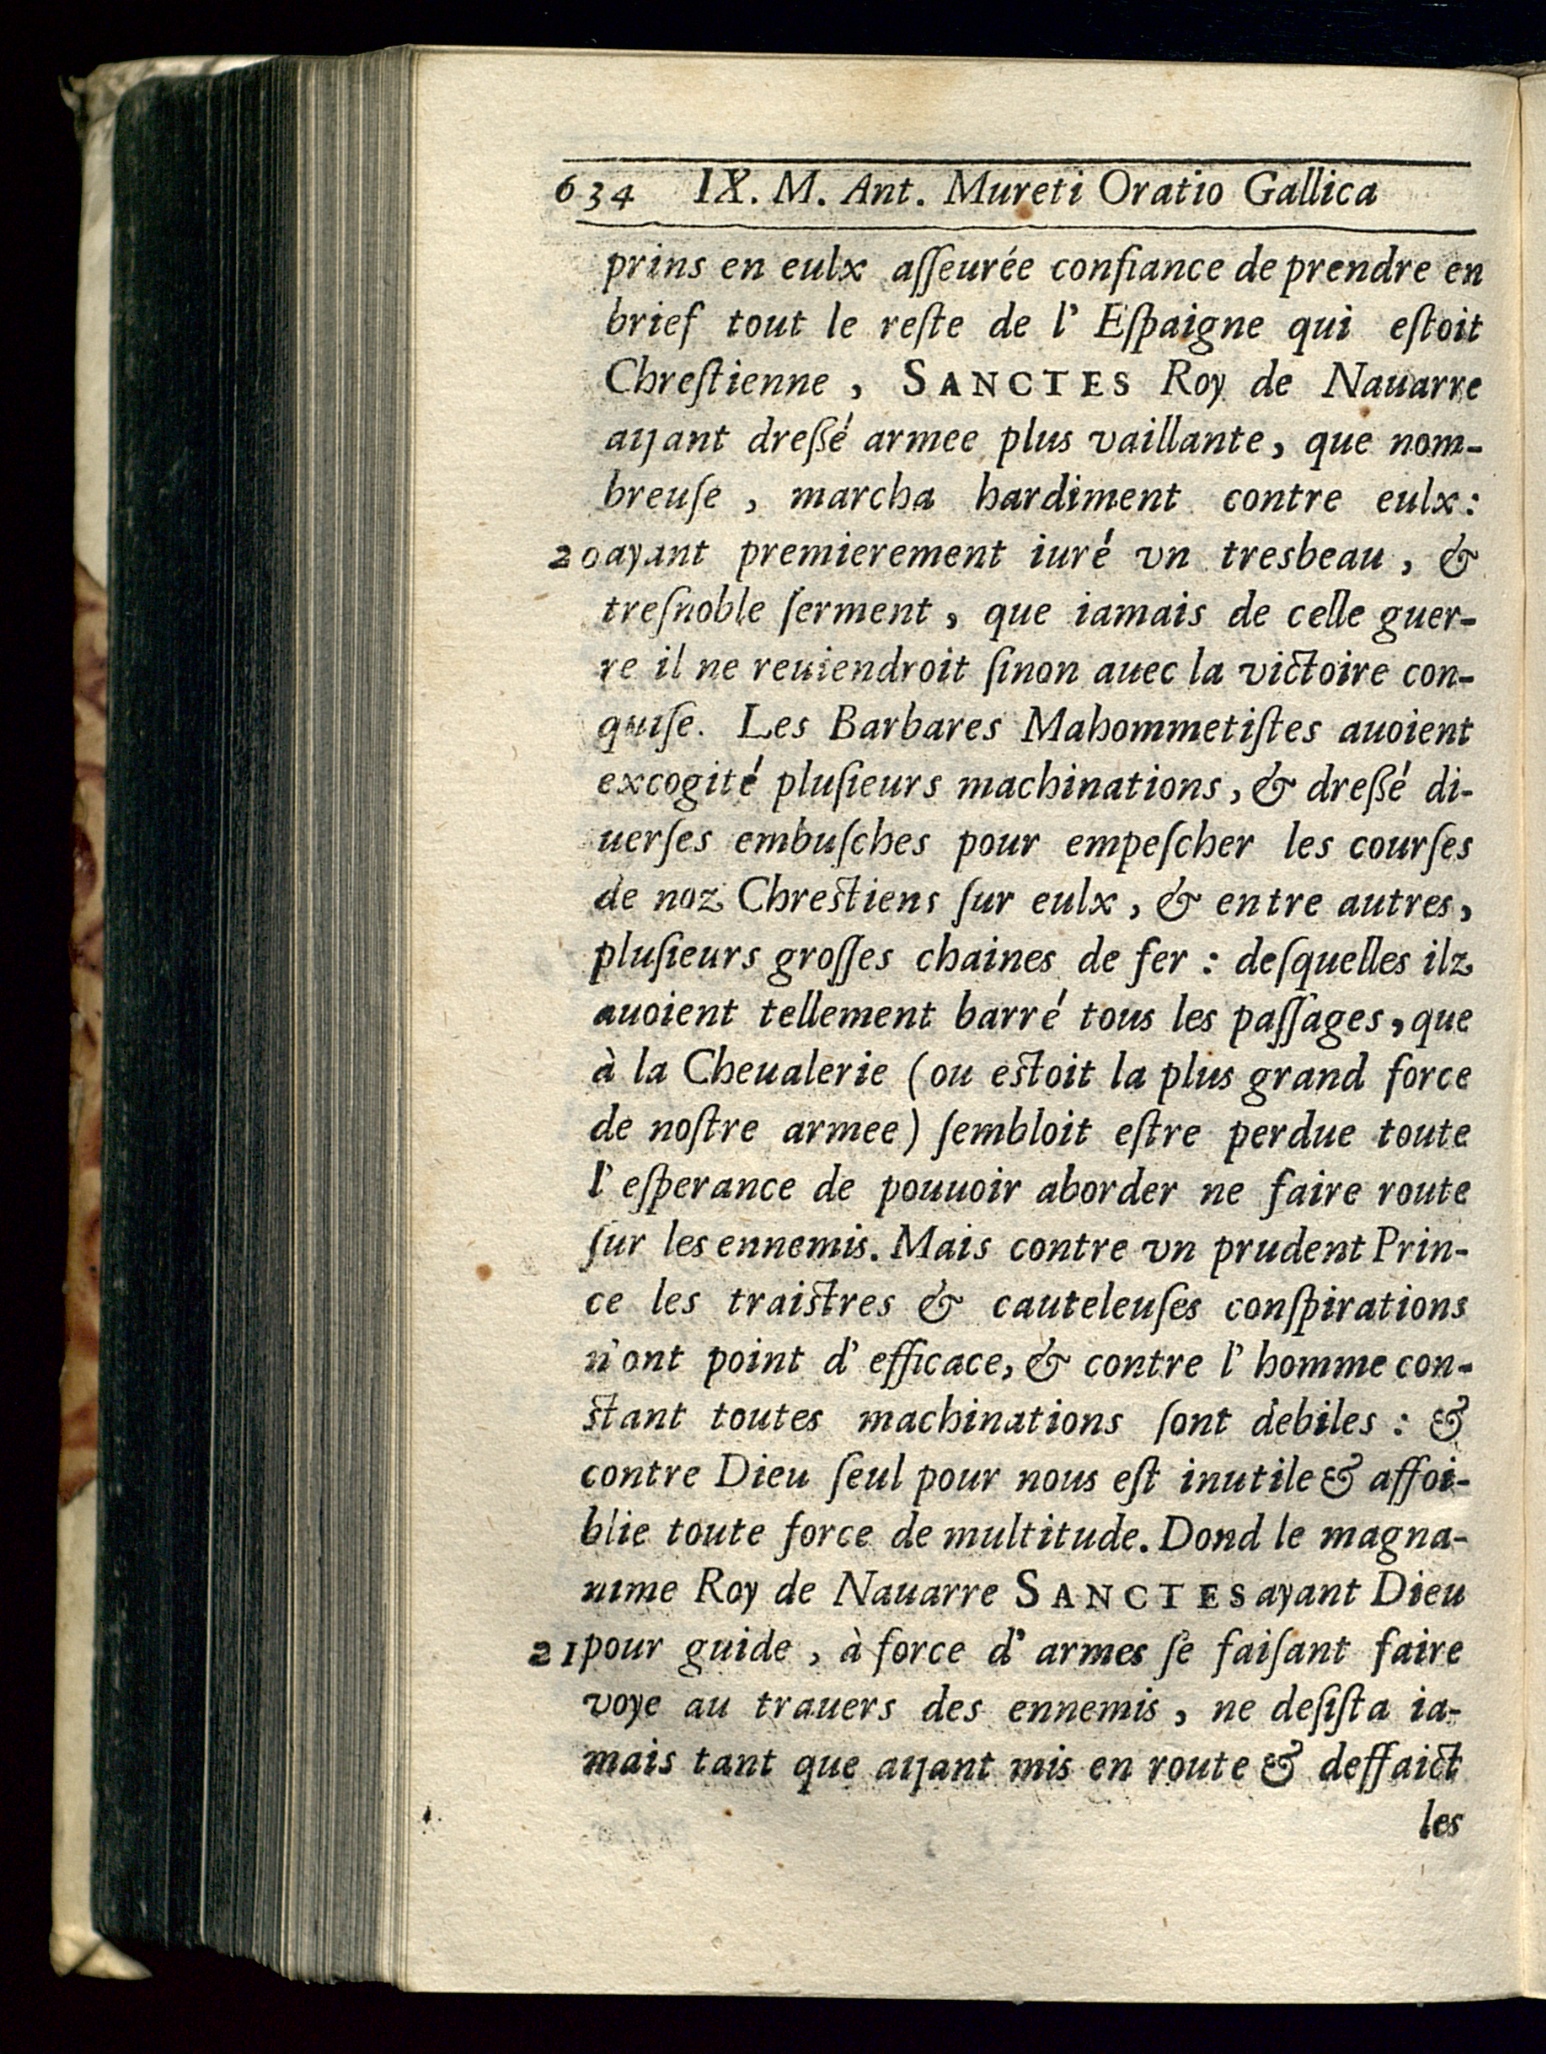 634 IX. M. Ant. Mureti Oratio Gallica
prins en eulx aſſeurée confiance de prendre en
brief tout le reſte de l' Eſpaigne qui eſtoit
Chreſtienne , SANCTES Roy de Nauarre
aijant dreßé armee plus vaillante, que nom-
breuſe , marcha hardiment contre eulx:
20 ayant premierement iuré vn tresbeau , &
treſnoble ſerment , que iamais de celle guer-
re il ne reuiendroit ſinon auec la victoire con-
quiſe. Les Barbares Mahommetiſtes auoient
excogité pluſieurs machinations, & dreßé di-
uerſes embuſches pour empeſcher les courſes
de noz Chreſtiens ſur eulx , & entre autres,
pluſieurs groſſes chaines de fer : deſquelles ilz
auoient tellement barré tous les paſſages, que
à la Cheualerie (ou eſtoit la plus grand force
de noſtre armee) ſembloit eſtre perdue toute
l' eſperance de pouuoir aborder ne faire route
ſur les ennemis. Mais contre vn prudent Prin-
ce les traiſtres & cauteleuſes conſpirations
n'ont point d' efficace, & contre l' homme con-
ſtant toutes machinations ſont debiles : &
contre Dieu ſeul pour nous eſt inutile & affoi-
blie toute force de multitude. Dond le magna-
nime Roy de Nauarre SANCTES ayant Dieu
21 pour guide , à force d' armes ſe faiſant faire
voye au trauers des ennemis , ne deſiſta ia-
mais tant que aijant mis en route & deffaict
les